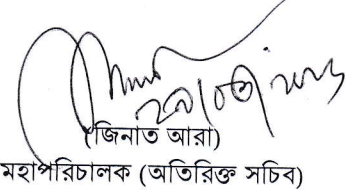 (জিনাত আরা)
মহাপরিচালক (অতিরিক্ত সচিব)